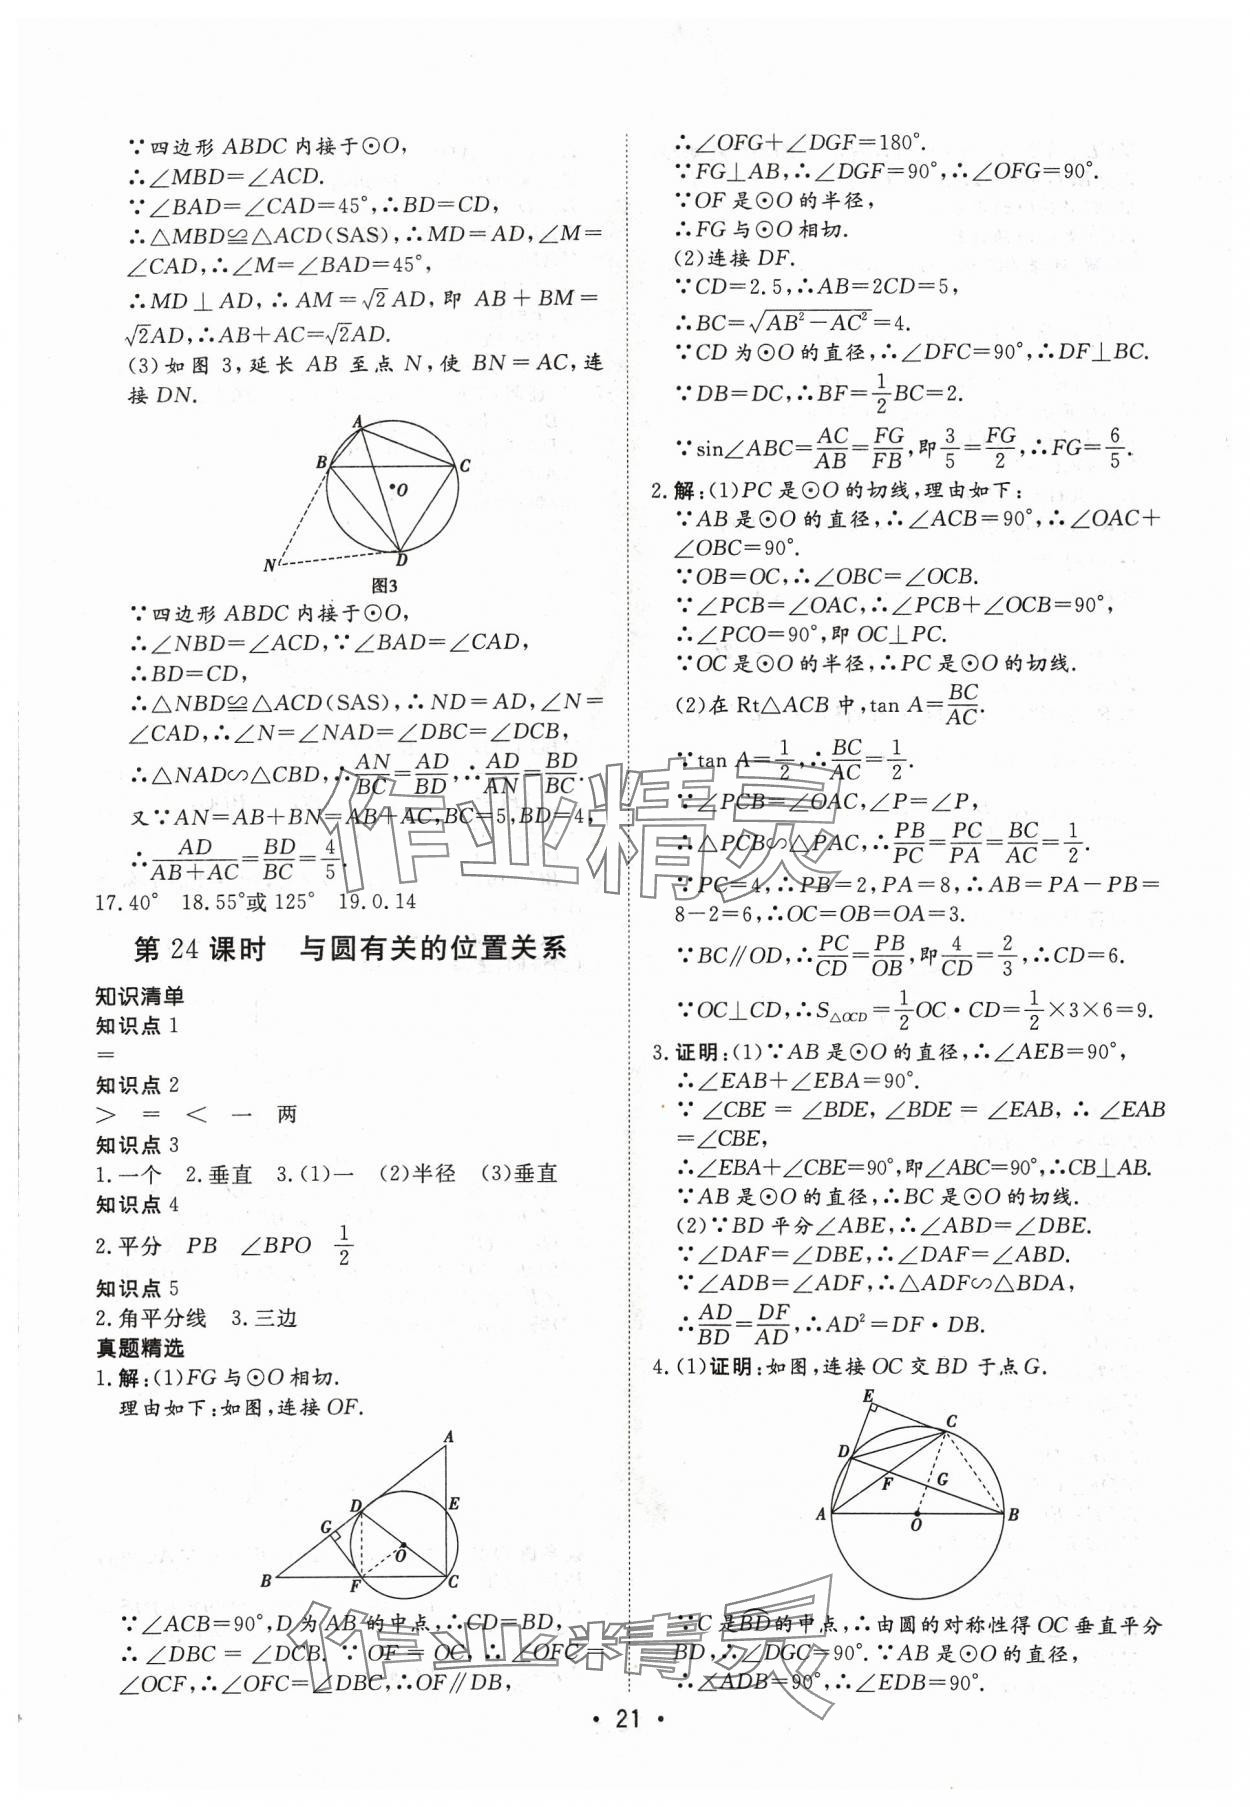 ∵四边形 ABDC 内接于⊙O,
∴∠MBD=∠ACD.
∵∠BAD=∠CAD=45°,∴BD=CD,
∴△MBD≌△ACD(SAS),∴MD=AD,∠M=
∠CAD,∴∠M=∠BAD=45°,
∴MD⊥AD,∴AM=√2AD,即 AB+BM=
√2AD,∴AB+AC=√2AD.
(3)如图 3,延长 AB 至点 N,使 BN=AC,连
接 DN.
A
B
C
O
N
D
图3
∵四边形 ABDC 内接于⊙O,
∴∠NBD=∠ACD,∵∠BAD=∠CAD,
∴BD=CD,
∴△NBD≌△ACD(SAS),∴ND=AD,∠N=
∠CAD,∴∠N=∠NAD=∠DBC=∠DCB,
∴△NAD∽△CBD,∴AN/BC=AD/BD,∴AD/AN=BD/BC.
又∵AN=AB+BN=AB+AC,BC=5,BD=4,
∴AD/(AB+AC)=BD/BC=4/5.
17.40° 18.55°或125° 19.0.14
第 24 课时 与圆有关的位置关系
知识清单
知识点 1
=
知识点 2
> = < 一 两
知识点 3
1.一个 2.垂直 3.(1)一 (2)半径 (3)垂直
知识点 4
2.平分 PB ∠BPO 1/2
知识点 5
2.角平分线 3.三边
真题精选
1.解:(1)FG 与⊙O 相切.
理由如下:如图,连接 OF.
A
D
E
G
O
B
F
C
∵∠ACB=90°,D 为 AB 的中点,∴CD=BD,
∴∠DBC=∠DCB.∵OF=OC,∴∠OFC=
∠OCF,∴∠OFC=∠DBC,∴OF∥DB,
∴∠OFG+∠DGF=180°.
∵FG⊥AB,∴∠DGF=90°,∴∠OFG=90°.
∵OF 是⊙O 的半径,
∴FG 与⊙O 相切.
(2)连接 DF.
∵CD=2.5,∴AB=2CD=5,
∴BC=√(AB²-AC²)=4.
∵CD 为⊙O 的直径,∴∠DFC=90°,∴DF⊥BC.
∵DB=DC,∴BF=1/2BC=2.
∵sin∠ABC=AC/AB=FG/FB,即3/5=FG/2,∴FG=6/5.
2.解:(1)PC 是⊙O 的切线,理由如下:
∵AB 是⊙O 的直径,∴∠ACB=90°,∴∠OAC+
∠OBC=90°.
∵OB=OC,∴∠OBC=∠OCB.
∵∠PCB=∠OAC,∴∠PCB+∠OCB=90°,
∴∠PCO=90°,即 OC⊥PC.
∵OC 是⊙O 的半径,∴PC 是⊙O 的切线.
(2)在 Rt△ACB 中,tan A=BC/AC.
∵tan A=1/2,∴BC/AC=1/2.
∵∠PCB=∠OAC,∠P=∠P,
∴△PCB∽△PAC,∴PB/PC=PC/PA=BC/AC=1/2.
∵PC=4,∴PB=2,PA=8,∴AB=PA-PB=
8-2=6,∴OC=OB=OA=3.
∵BC∥OD,∴PC/CD=PB/OB,即4/CD=2/3,∴CD=6.
∵OC⊥CD,∴S△OCD=1/2OC·CD=1/2×3×6=9.
3.证明:(1)∵AB 是⊙O 的直径,∴∠AEB=90°,
∴∠EAB+∠EBA=90°.
∵∠CBE=∠BDE,∠BDE=∠EAB,∴∠EAB
=∠CBE,
∴∠EBA+∠CBE=90°,即∠ABC=90°,∴CB⊥AB.
∵AB 是⊙O 的直径,∴BC 是⊙O 的切线.
(2)∵BD 平分∠ABE,∴∠ABD=∠DBE.
∵∠DAF=∠DBE,∴∠DAF=∠ABD.
∵∠ADB=∠ADF,∴△ADF∽△BDA,
∴AD/BD=DF/AD,∴AD²=DF·DB.
4.(1)证明:如图,连接 OC 交 BD 于点 G.
E
C
D
F
G
A
O
B
∵C 是BD的中点,∴由圆的对称性得 OC 垂直平分
BD,∴∠DGC=90°.∵AB 是⊙O 的直径,
∴∠ADB=90°,∴∠EDB=90°.
• 21 •
作业精灵
作业精灵